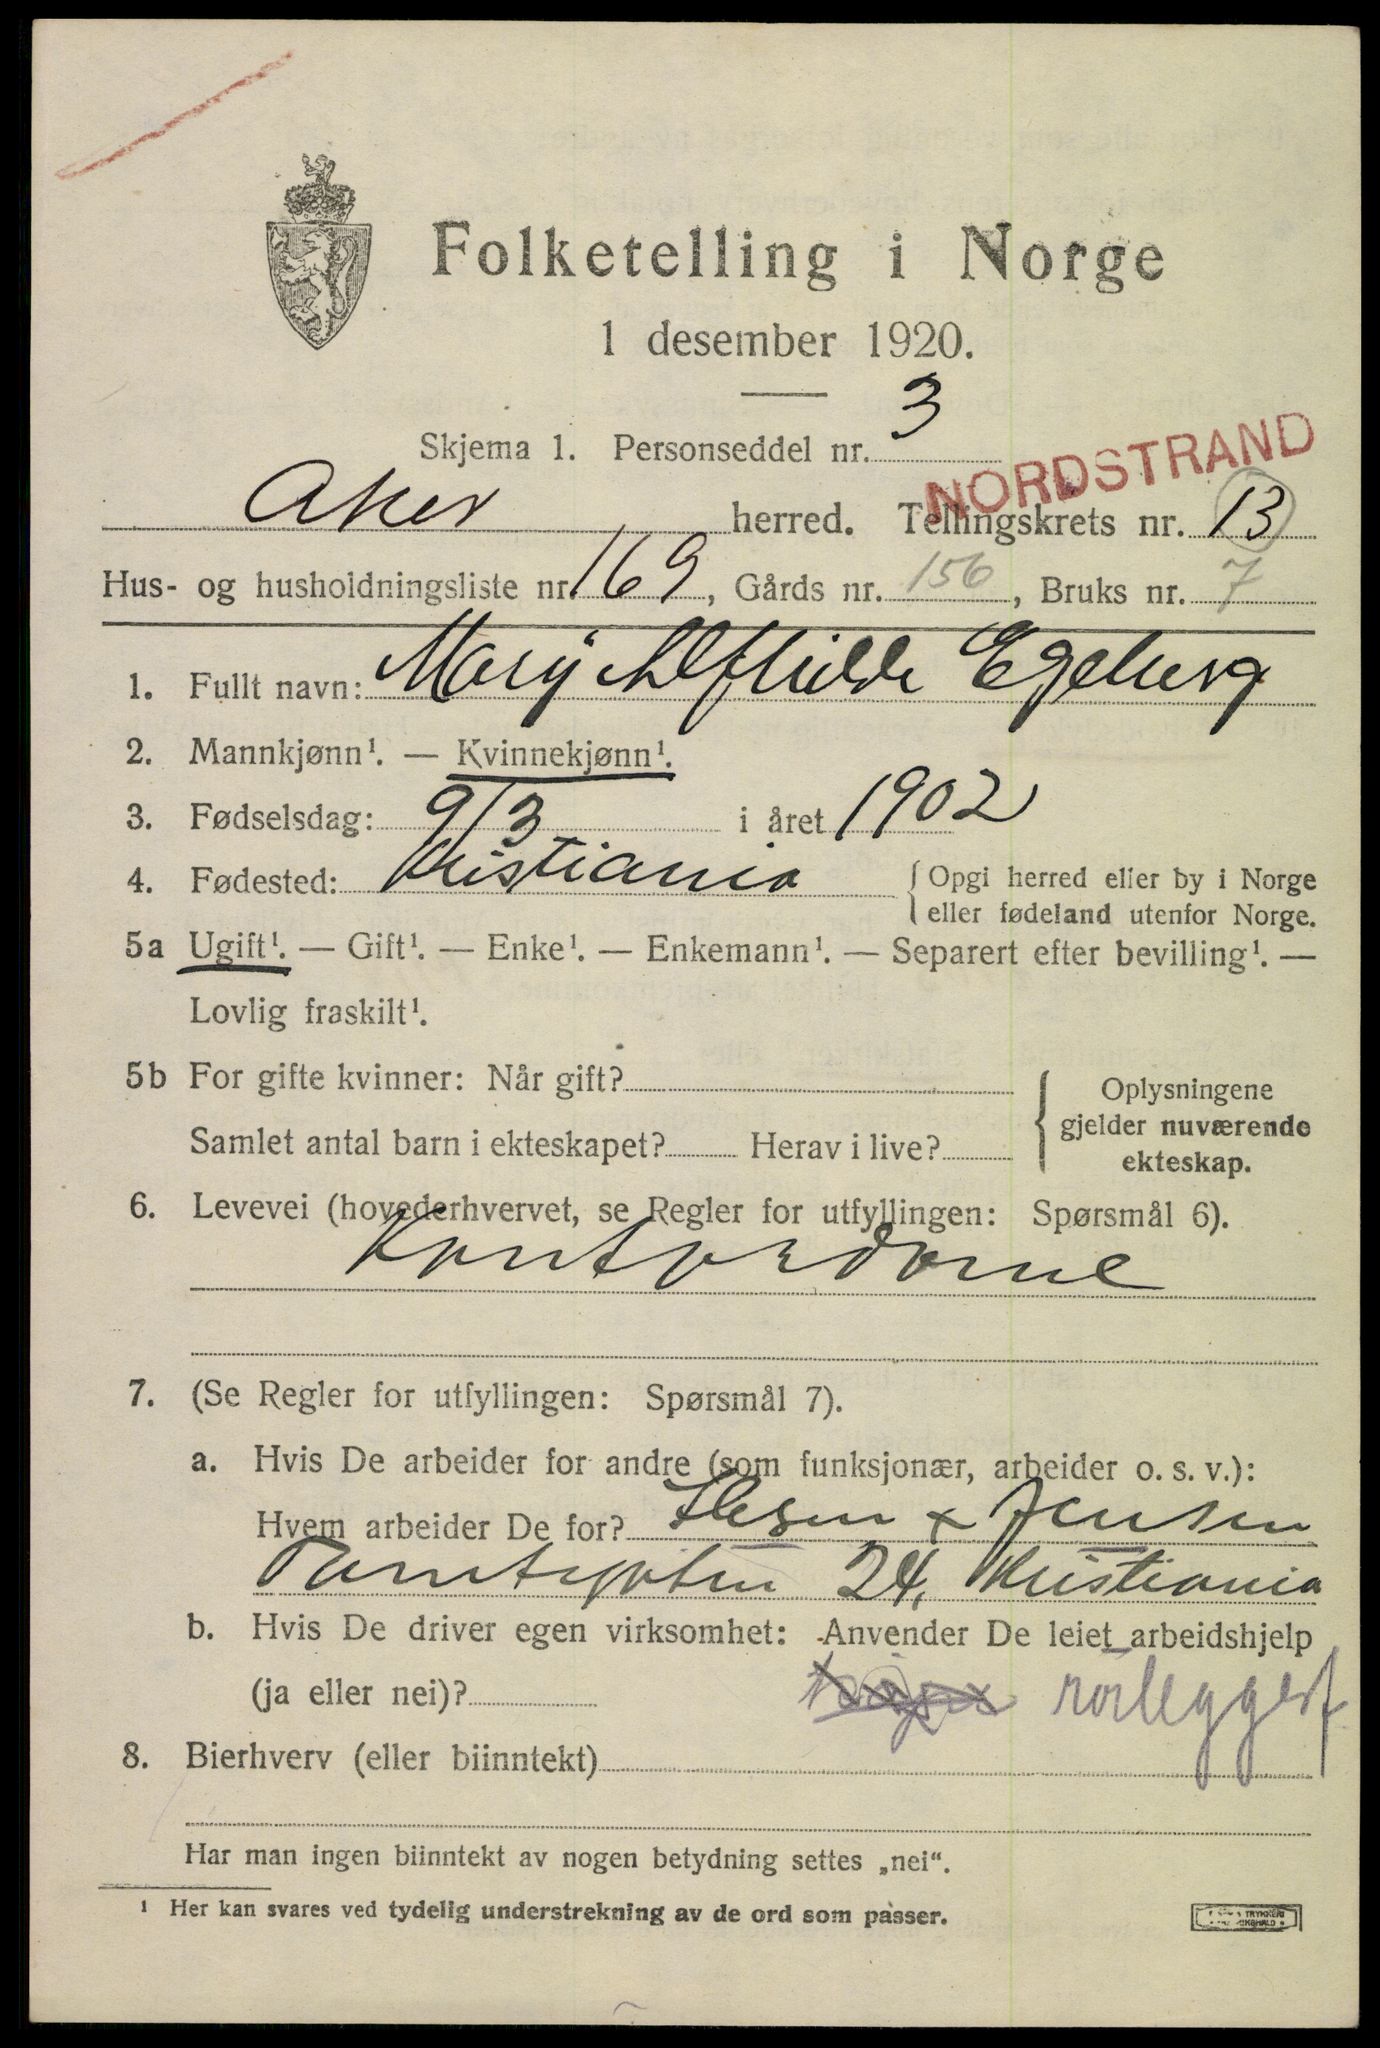 Folketelling i Norge
1 desember 1920.
Skjema 1. Personseddel nr. 3
NORDSTRAND
Aker herred. Tellingskrets nr. 13
Hus- og husholdningsliste nr. 169, Gårds nr. 156, Bruks nr. 7
1. Fullt navn: Mary Alfhilde Egeberg
2. Mannkjønn¹. — Kvinnekjønn¹.
3. Fødselsdag: 9/3 i året 1902
4. Fødested: Kristiania { Opgi herred eller by i Norge
eller fødeland utenfor Norge.
5a Ugift¹. — Gift¹. — Enke¹. — Enkemann¹. — Separert efter bevilling¹. —
Lovlig fraskilt¹.
5b For gifte kvinner: Når gift?
Samlet antal barn i ekteskapet? Herav i live?
{ Oplysningene
gjelder nuværende
ekteskap.
6. Levevei (hovederhvervet, se Regler for utfyllingen: Spørsmål 6).
Kontordame
7. (Se Regler for utfyllingen: Spørsmål 7).
a. Hvis De arbeider for andre (som funksjonær, arbeider o. s. v.):
Hvem arbeider De for? & Jensen
24, Kristiania
b. Hvis De driver egen virksomhet: Anvender De leiet arbeidshjelp
(ja eller nei)? rørleggerf
8. Bierhverv (eller biinntekt)
Har man ingen biinntekt av nogen betydning settes „nei“.
¹ Her kan svares ved tydelig understrekning av de ord som passer.